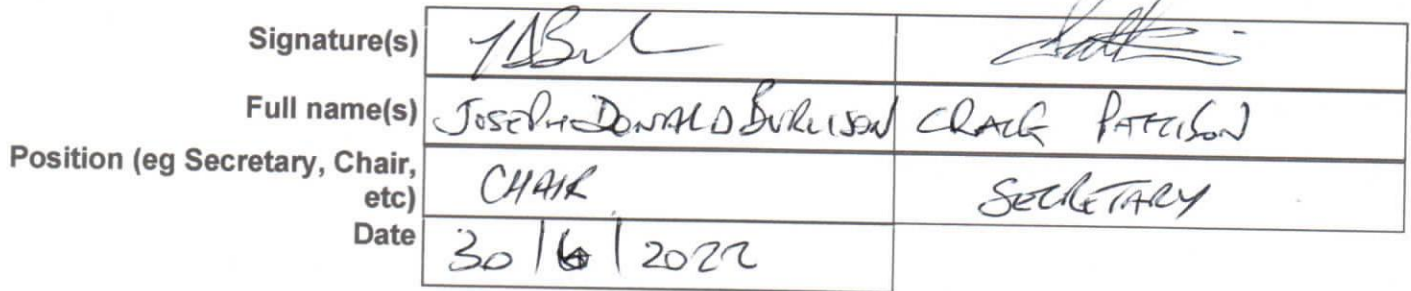 Signature(s)
Full name(s) JOSEPH DONALD BURLISON CRAIG PATTISON
Position (eg Secretary, Chair,
etc) CHAIR SECRETARY
Date 30/6/2022